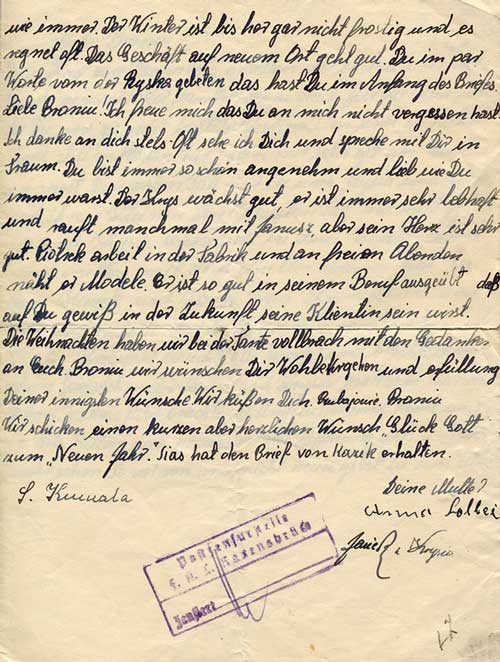 wie immer. Der Winter ist bis her gar nicht frostig und es
regnet oft. Das Geschäft auf neuem Ort geht gut. Du im par
Worte vom der Ryska gebeten das hast Du im Anfang des Briefes.
Liebe Broniu! Ich freue mich das Du an mich nicht vergessen hast.
Ich danke an dich stets. Oft sehe ich Dich und spreche mit Dir in
Traum. Du bist immer so schön angenehm und lieb wie Du
immer warst. Der Krys wächst gut, er ist immer sehr lebhaft
und rauft manchmal mit Janusz, aber sein Herz ist sehr
gut. Piotrek arbeit in der Fabrik und an freien Abenden
näht er Modele. Er ist so gut in seinem Beruf ausgeübt daß
auf Du gewiß in der Zukunft seine Klientin sein wirst.
Die Weihnachten haben wir bei der Tante vollbrach mit den Gedanken
an Euch. Broniu wir wünschen Dir Wohlbehergehen und erfüllung
Deiner innigsten Wünsche Wir küßen Dich. Broniu
Wir schicken einen kurzen aber herzlichen Wunsch „Glück Gott
zum „Neuen Jahr". Stas hat den Brief von Kazik erhalten.
Deine Mutter
S. Kumala
Anna
Postzensurstelle
F. K. L. Ravensbrück
Zensiert